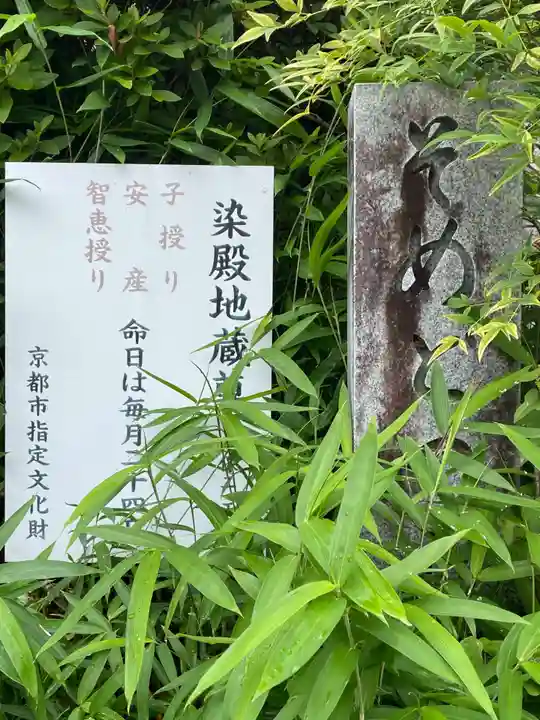 そめと
染殿地蔵
子授り
安産
智恵授り
命日は毎月二十四
京都市指定文化財